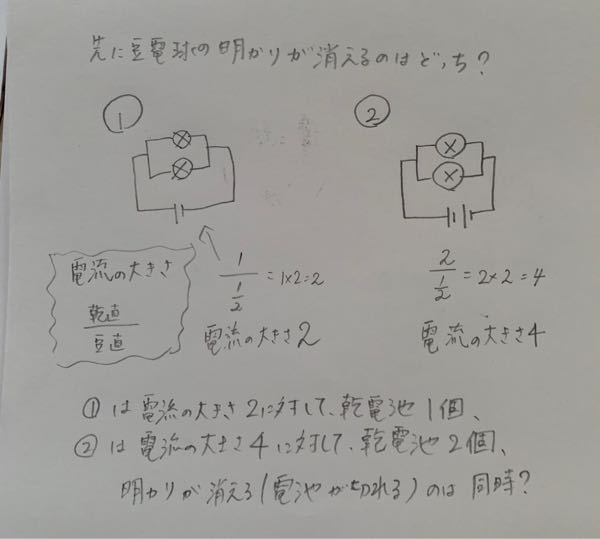 先に豆電球の明かりが消えるのはどっち?
① ②
電流の大きさ
乾直/豆直
1/(1/2) = 1×2=2
電流の大きさ2
2/(1/2) = 2×2=4
電流の大きさ4
①は電流の大きさ2に対して、乾電池1個、
②は電流の大きさ4に対して、乾電池2個、
明カリが消える(電池が切れる)のは同時?